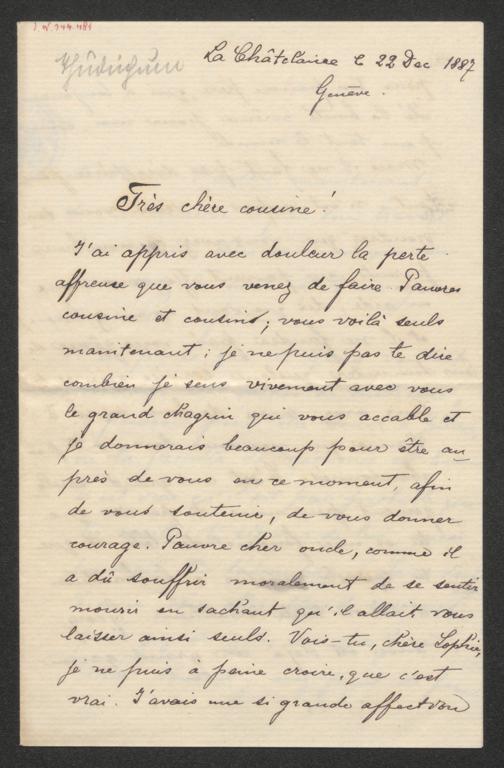 La Châtelaine le 22 Dec 1887
Genève.
Très chère cousine!
J'ai appris avec douleur la perte
affreuse que vous venez de faire. Pauvres
cousine et cousins; vous voilà seuls
maintenant; je ne puis pas te dire
combien je sens vivement avec vous
le grand chagrin qui vous accable et
je donnerais beaucoup pour être au-
près de vous en ce moment, afin
de vous soutenir, de vous donner
courage. Pauvre cher oncle, comme il
a dû souffrir moralement de se sentir
mourir en sachant qu'il allait vous
laisser ainsi seuls. Vois-tu, chère Sophie,
je ne puis à peine croire, que c'est
vrai. J'avais une si grande affection